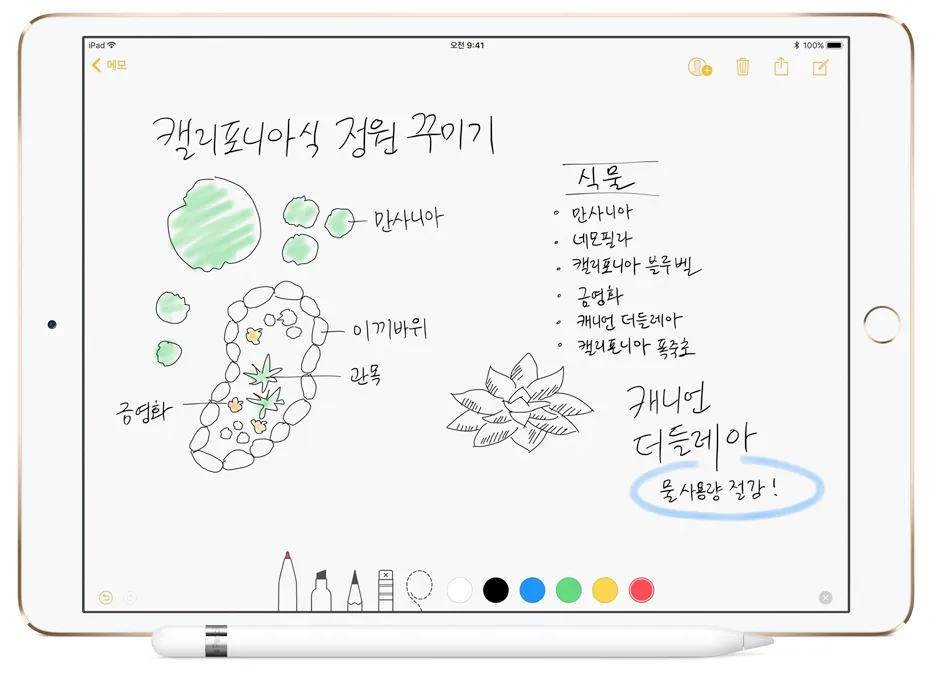 iPad
오전 9:41
100%
메모
캘리포니아식 정원 꾸미기
만사니아
이끼바위
관목
금영화
식물
• 만사니아
• 네모필라
• 캘리포니아 블루벨
• 금영화
• 캐니언 더들레아
• 캘리포니아 폭죽초
캐니언
더들레아
물 사용량 절감!